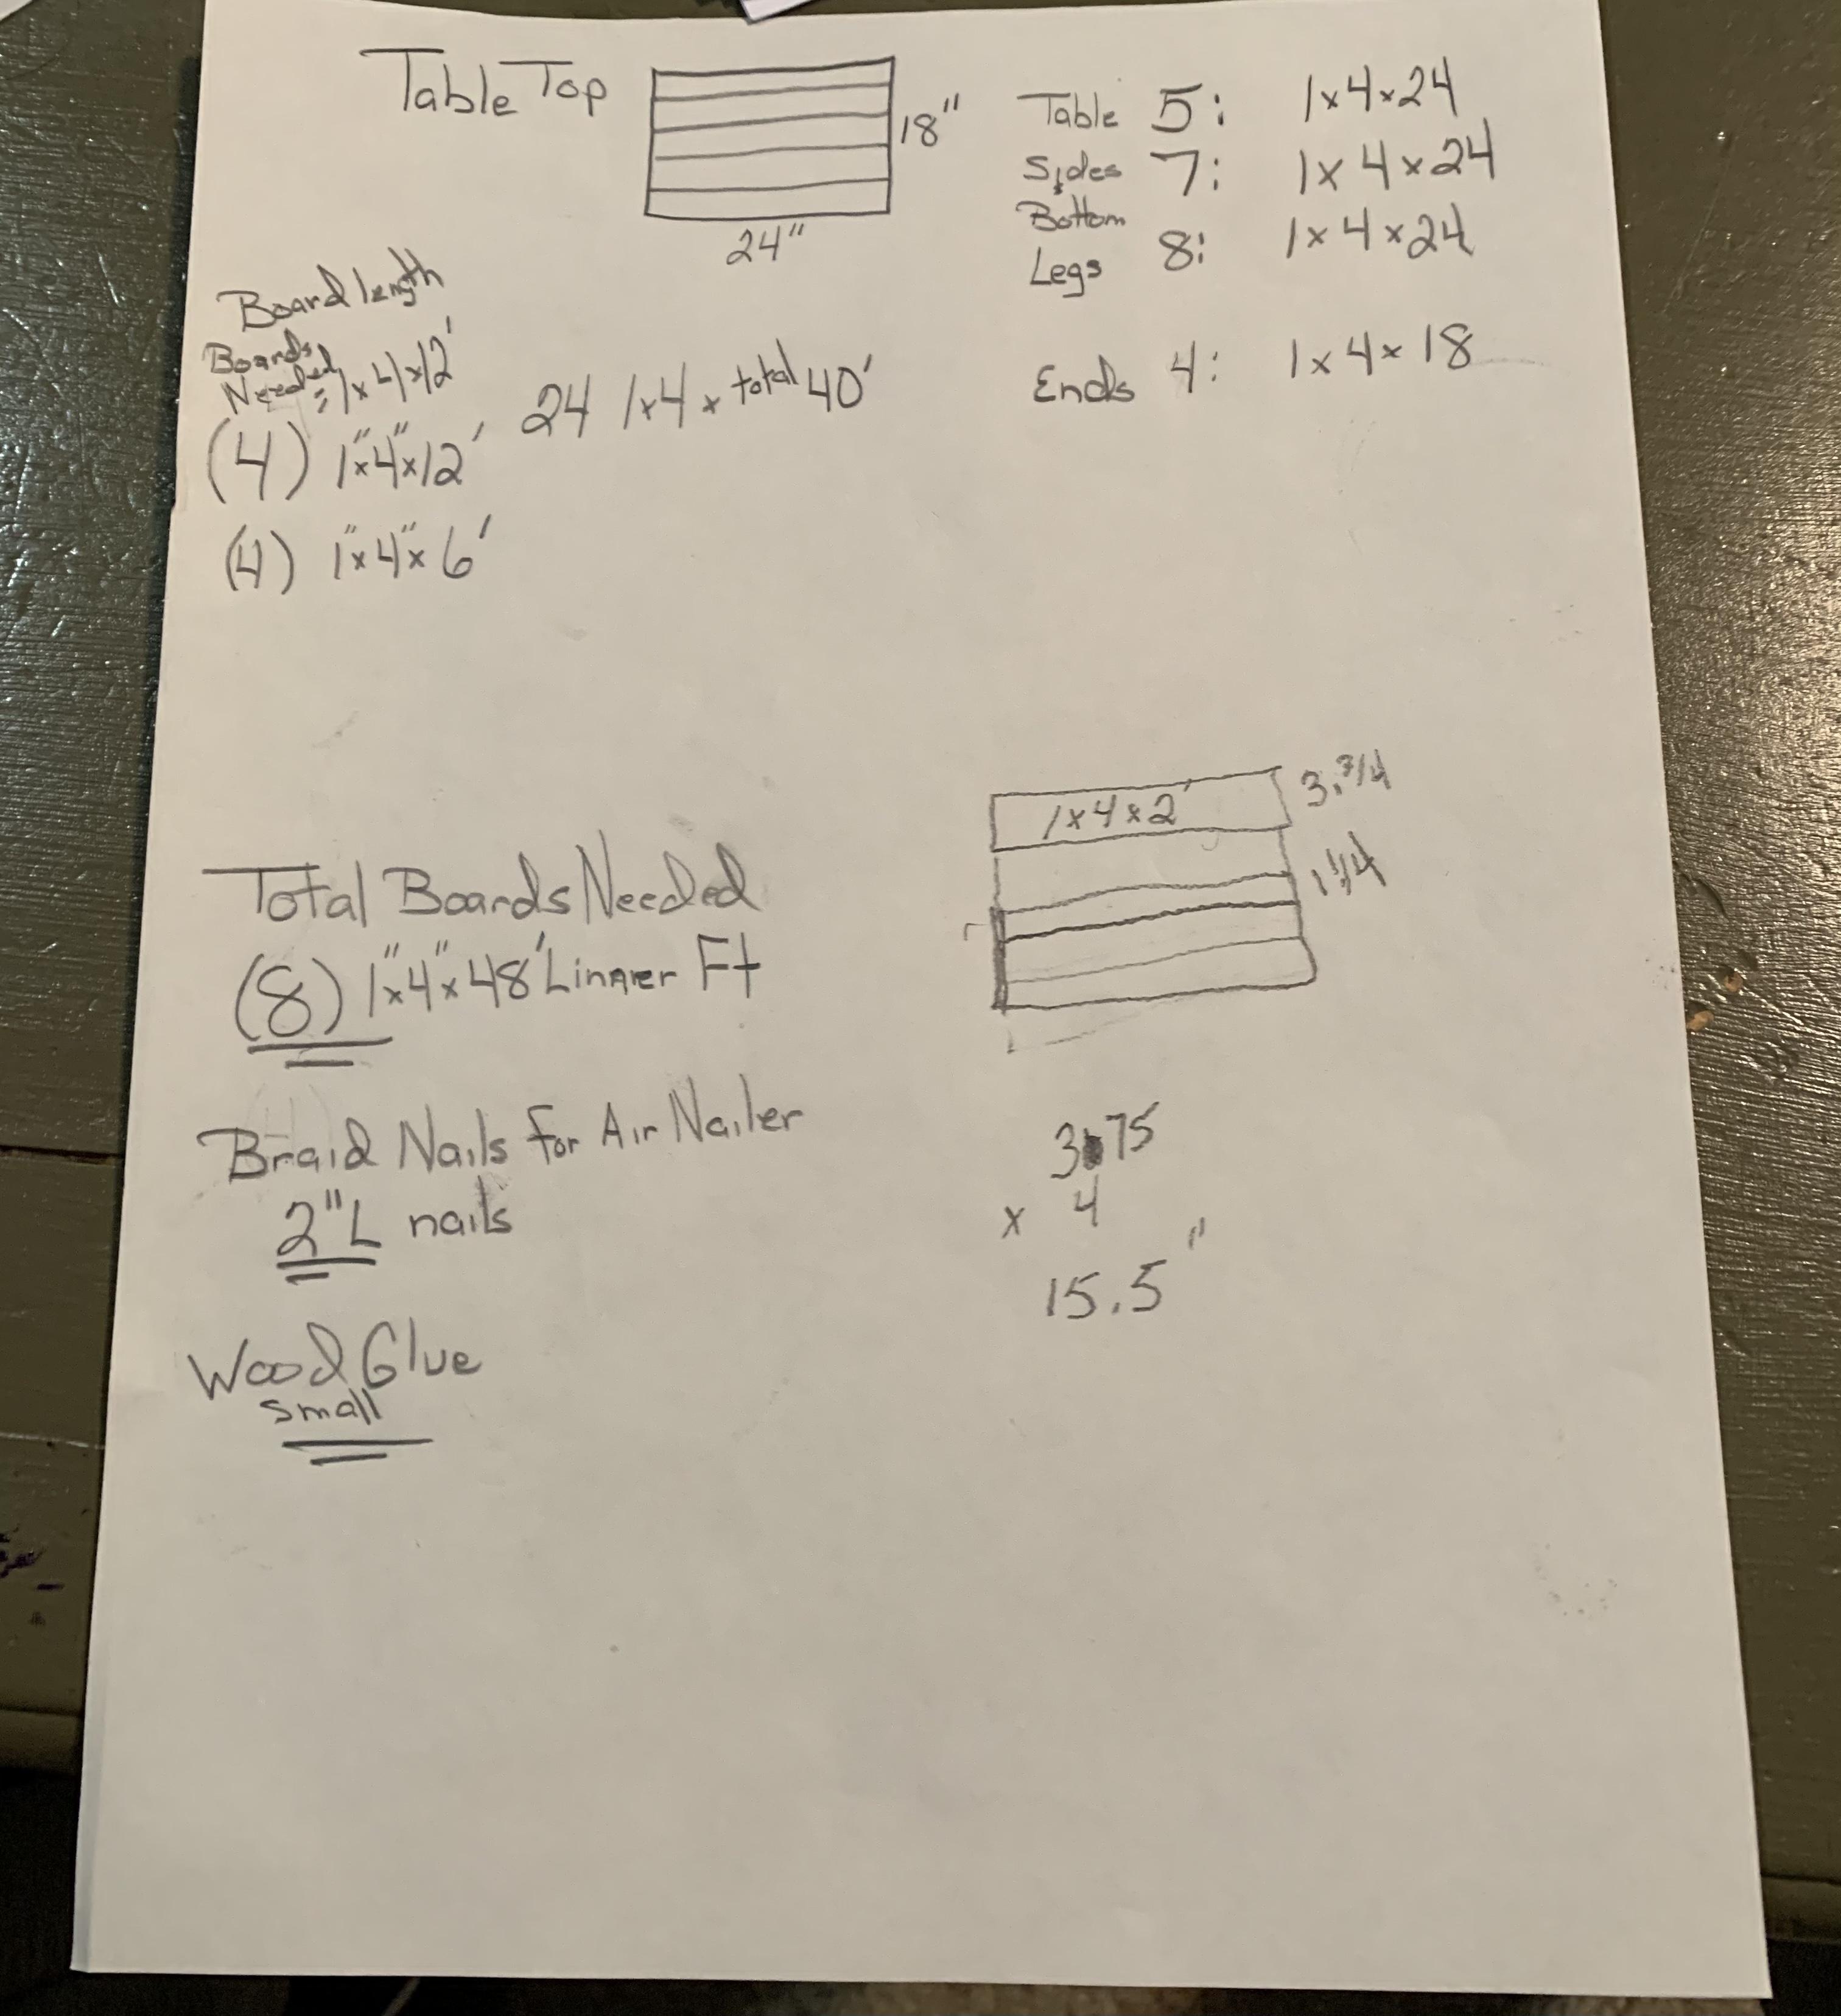 Table Top
18"
24"
Table 5: 1x4x24
Sides 7: 1x4x24
Bottom
Legs 8: 1x4x24
Ends 4: 1x4x18
Board length
Boards
Needed = 1x4x12'
(4) 1"x4"x12'
24 1x4 x total 40'
(4) 1"x4"x6'
1x4x2'
3.3/4
1 1/4
Total Boards Needed
(8) 1"x4"x48' Linnrer Ft
Braid Nails for Air Nailer
2"L nails
Wood Glue
small
3.75
x 4
15.5"